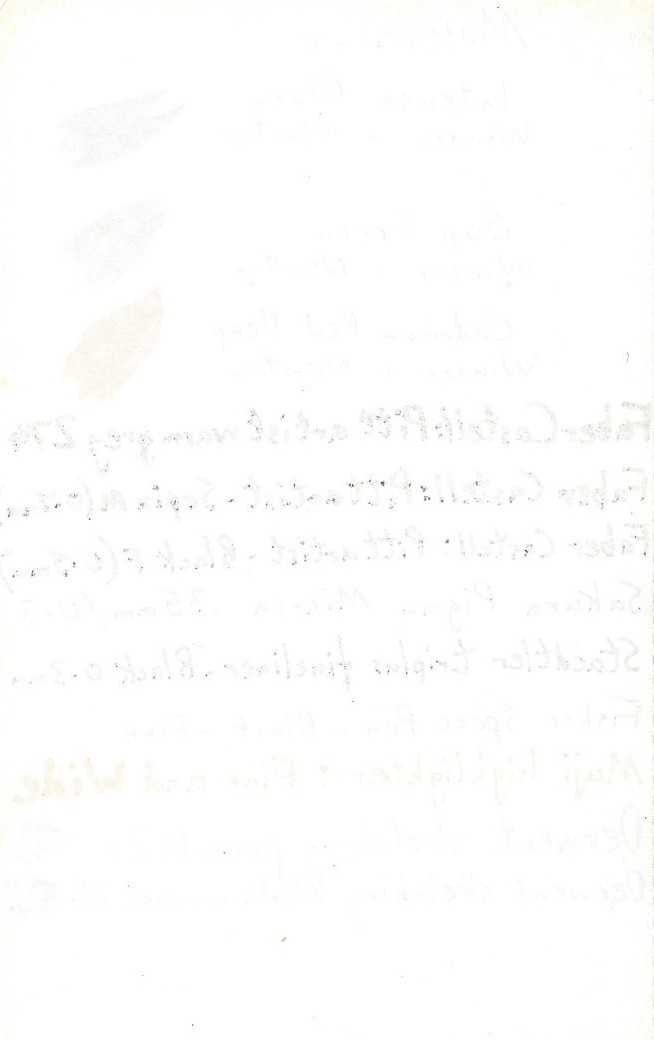 Moleskine
Intense Blue
Winsor & Newton
Sap Green
Winsor & Newton
Cadmium Red Deep
Winsor & Newton
Faber Castell: Pitt artist warmgrey 274
Faber Castell: Pitt artist - Sepia M (0.7mm)
Faber Castell: Pitt artist - Black F (0.5mm)
Sakura Pigma Micron .35mm/0.3
Staedtler triplus fineliner - Black 0.3mm
Fisher Space Pen - Black - Fine
Muji highlighter: Fine and Wide
Derwent sketching
Derwent sketching Medium